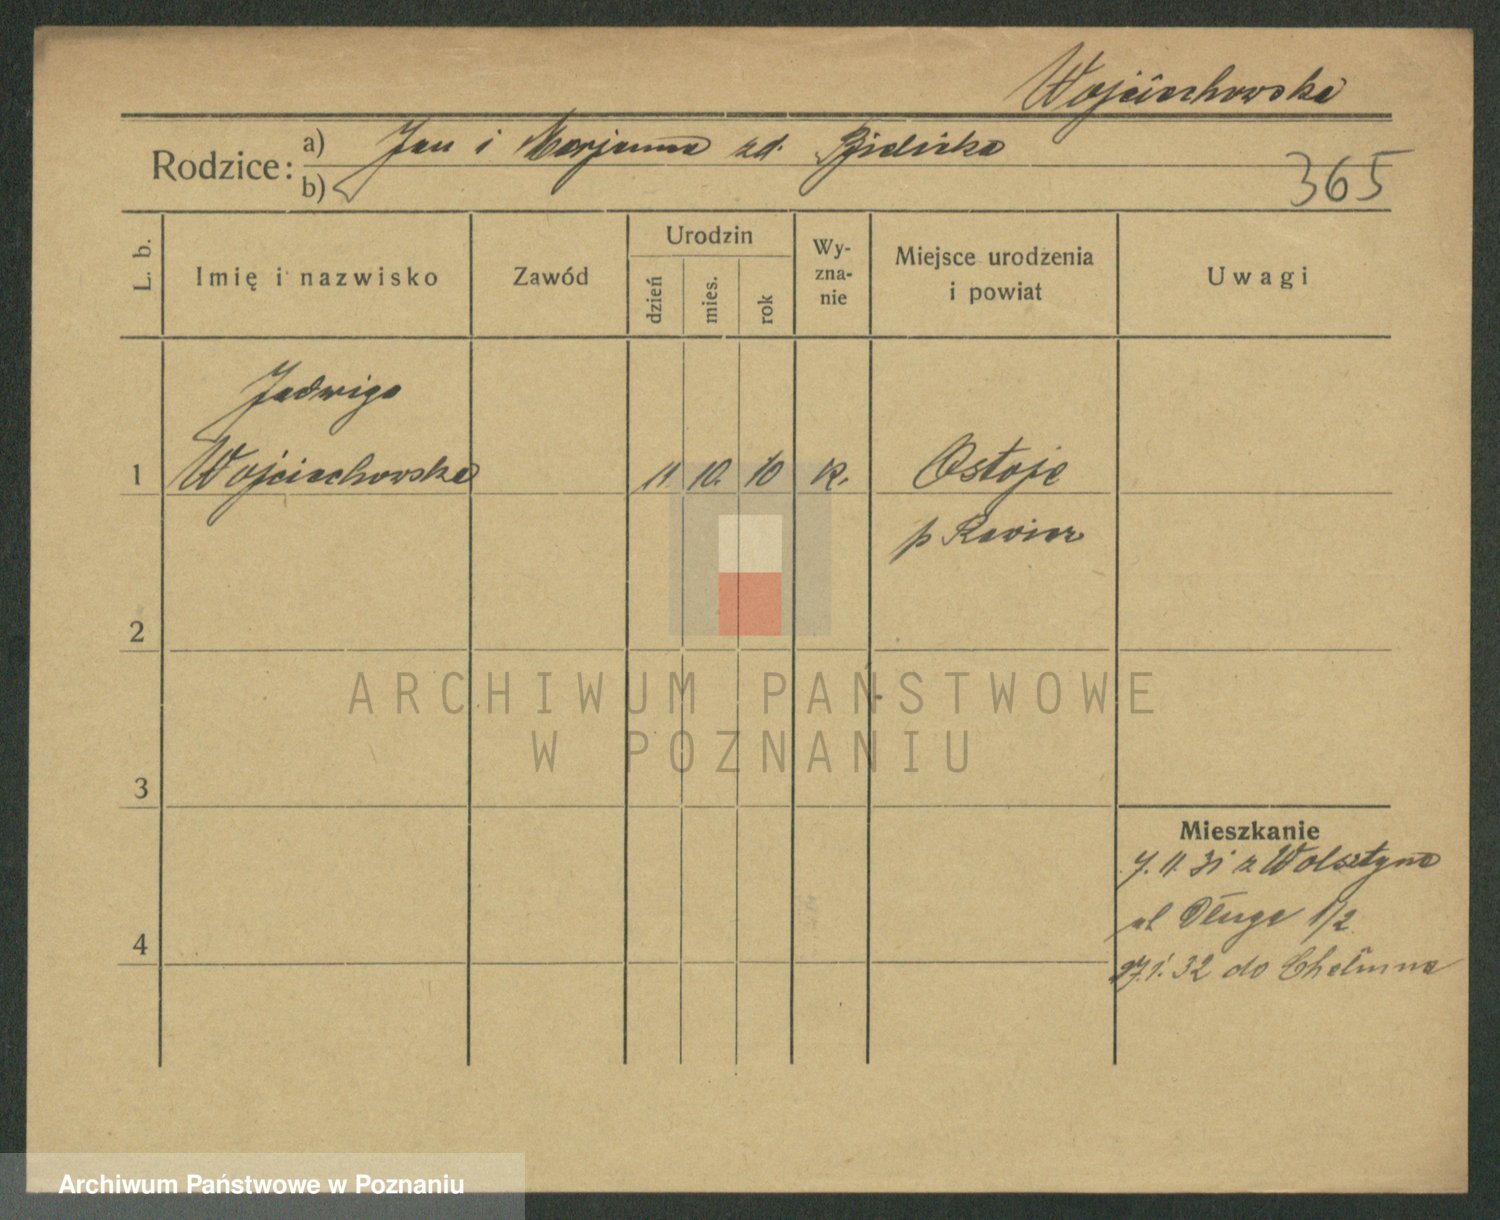 Wojciechowska
Rodzice: a) Jan i Marjanna zd.
b)
365
L. b.
Imię i nazwisko
Zawód
Urodzin
dzień
mies.
rok
Wy-
zna-
nie
Miejsce urodzenia
i powiat
Uwagi
Jadwiga
1 Wojciechowska 11 10. 10 k. Ostoje
p
2
ARCHIWUM PAŃSTWOWE
W POZNANIU
3
Mieszkanie
7.11.31 z Wolsztyna
ul Długa 1/2
4
27.1.32 do Chełmna
Archiwum Państwowe w Poznaniu